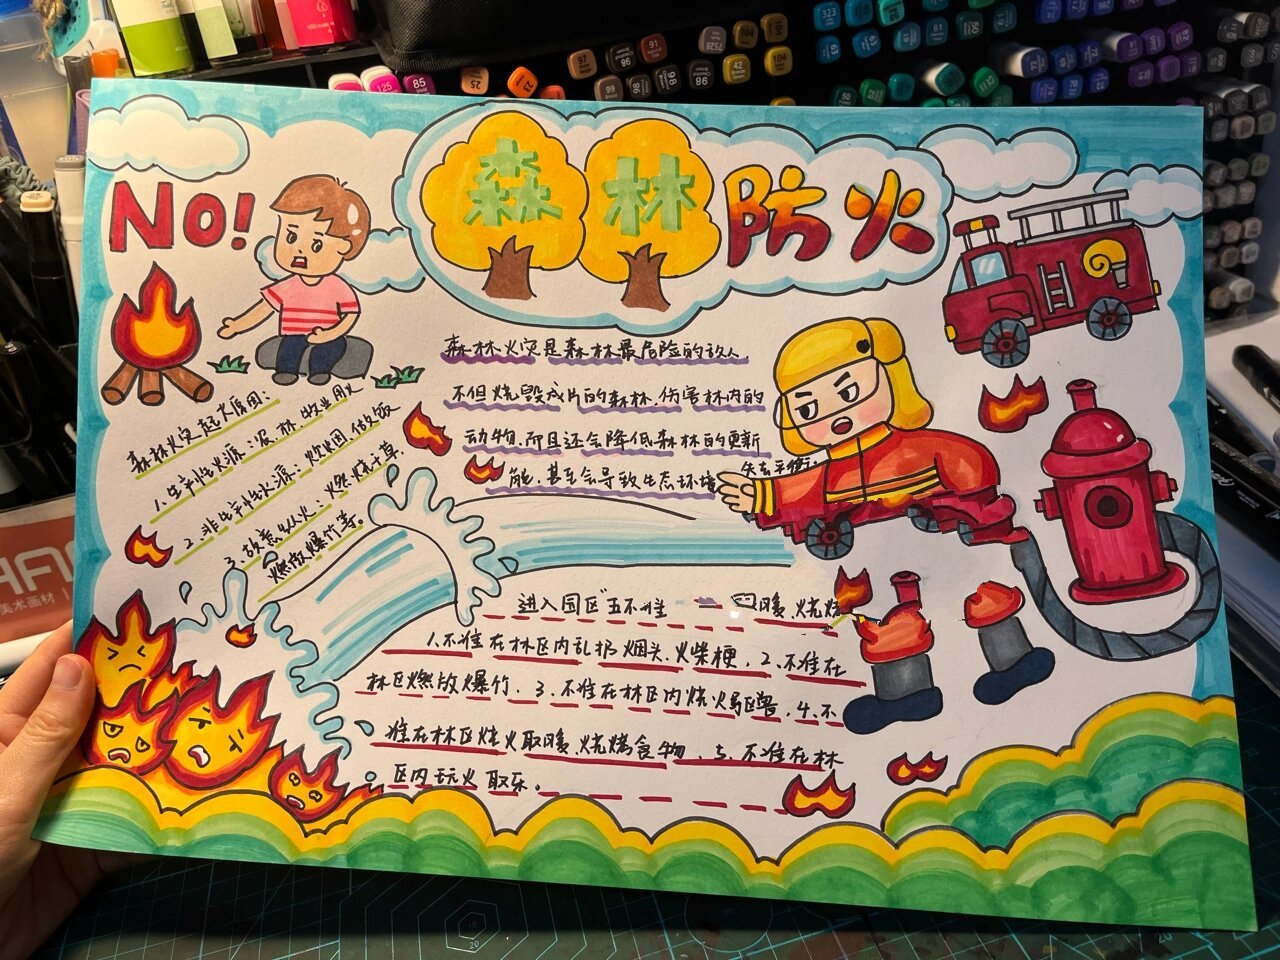 NO!
森林防火
森林火灾是森林最危险的敌人
不但烧毁成片的森林、伤害林内的
动物、而且还会降低森林的更新
能、甚至会导致生态环境失去平衡。
森林火灾起火原因：
1.生产性火源：农、林、牧业用火
2.非生产性火源：吸烟、做饭
3.故意纵火：燃烧干草、
燃放爆竹等。
进入园区"五不准
暖、烧烤
1.不准在林区内乱扔烟头、火柴梗、2.不准在
林区燃放爆竹、3.不准在林区内烧火驱兽、4.不
准在林区烧火取暖、烧烤食物、5.不准在林
区内玩火取乐。
125
85
25
97
98
91
99
42
104
323
69
美术画材